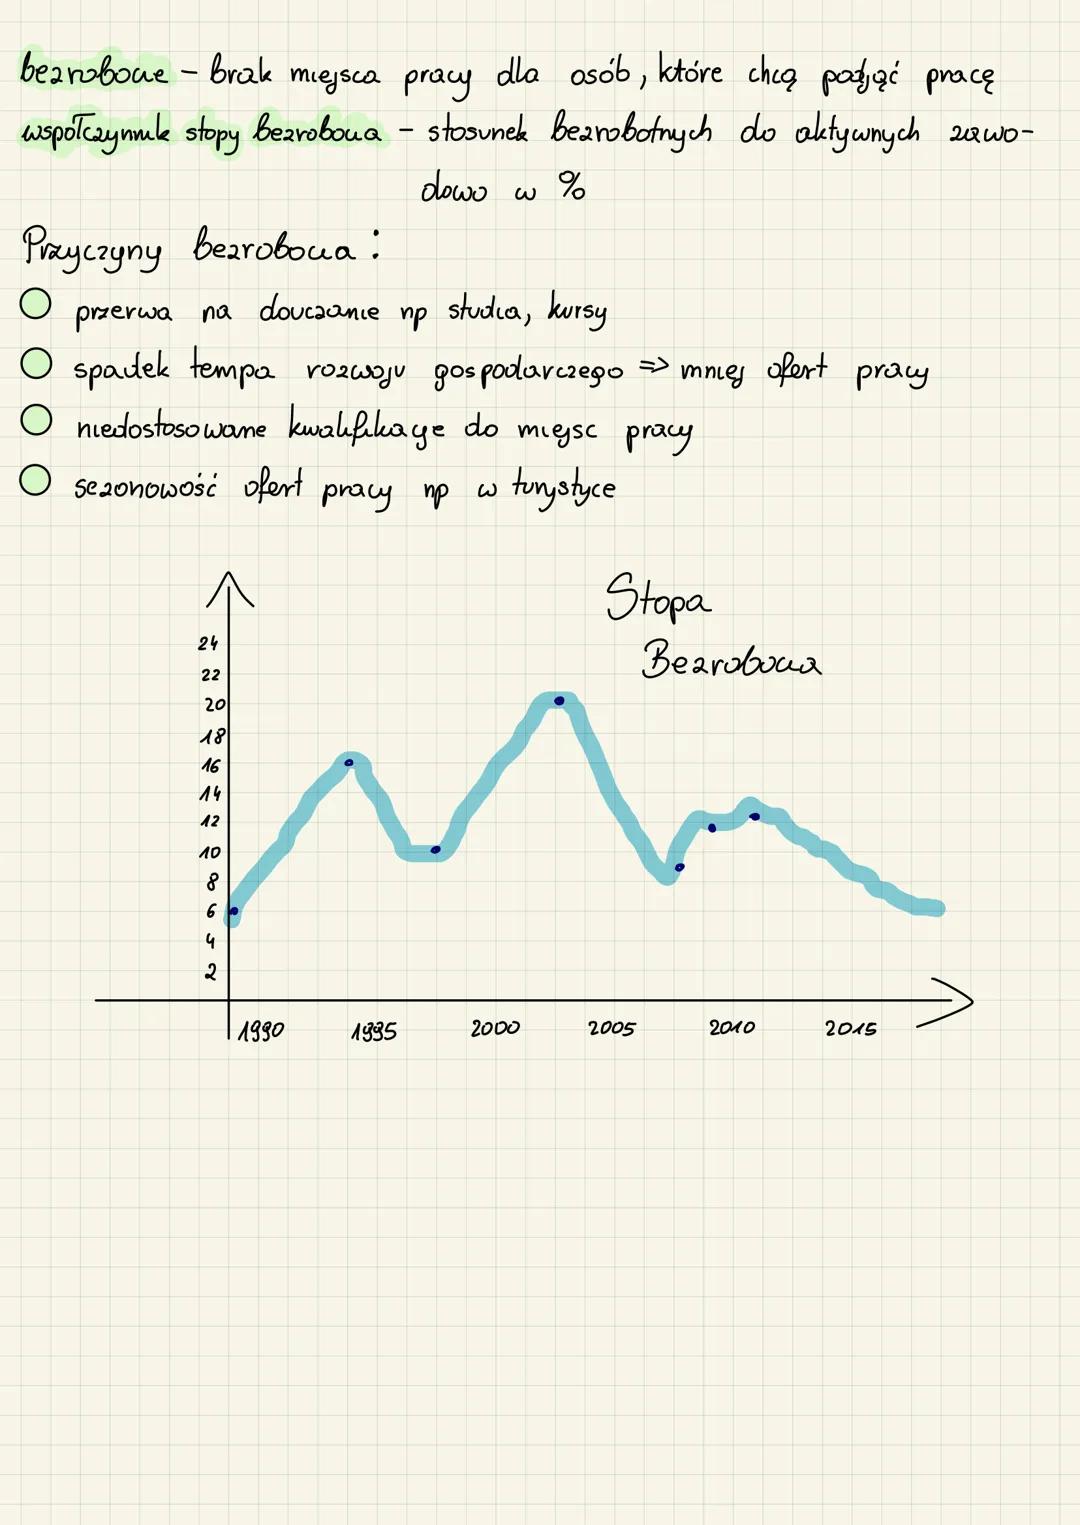 bezrobocie - brak miejsca pracy dla osób, które chcą podjąć pracę
współczynnik stopy bezrobocia - stosunek bezrobotnych do aktywnych zawo-
dowo w %
Przyczyny bezrobocia:
przerwa na douczanie np studia, kursy
spadek tempa rozwoju gospodarczego => mniej ofert pracy
niedostosowane kwalifikacje do miejsc pracy
sezonowość ofert pracy np w turystyce
Stopa
Bezrobocia
24
22
20
18
16
14
12
10
8
6
4
2
1990 1995 2000 2005 2010 2015